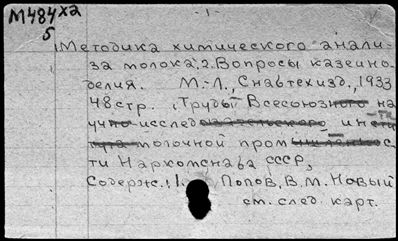 М484х2
- 1 -
5
Методика химического анали-
за молока; 2. Вопросы казеино-
делия. М.-Л., Снабтехизд., 1933
48 стр. (Труды Всесоюзного на
учно-исследовательского инсти
тута молочной промышленнос
ти Наркомснаба СССР,
Содерж.: 1. Попов, В.М. Новый
см. след. карт.